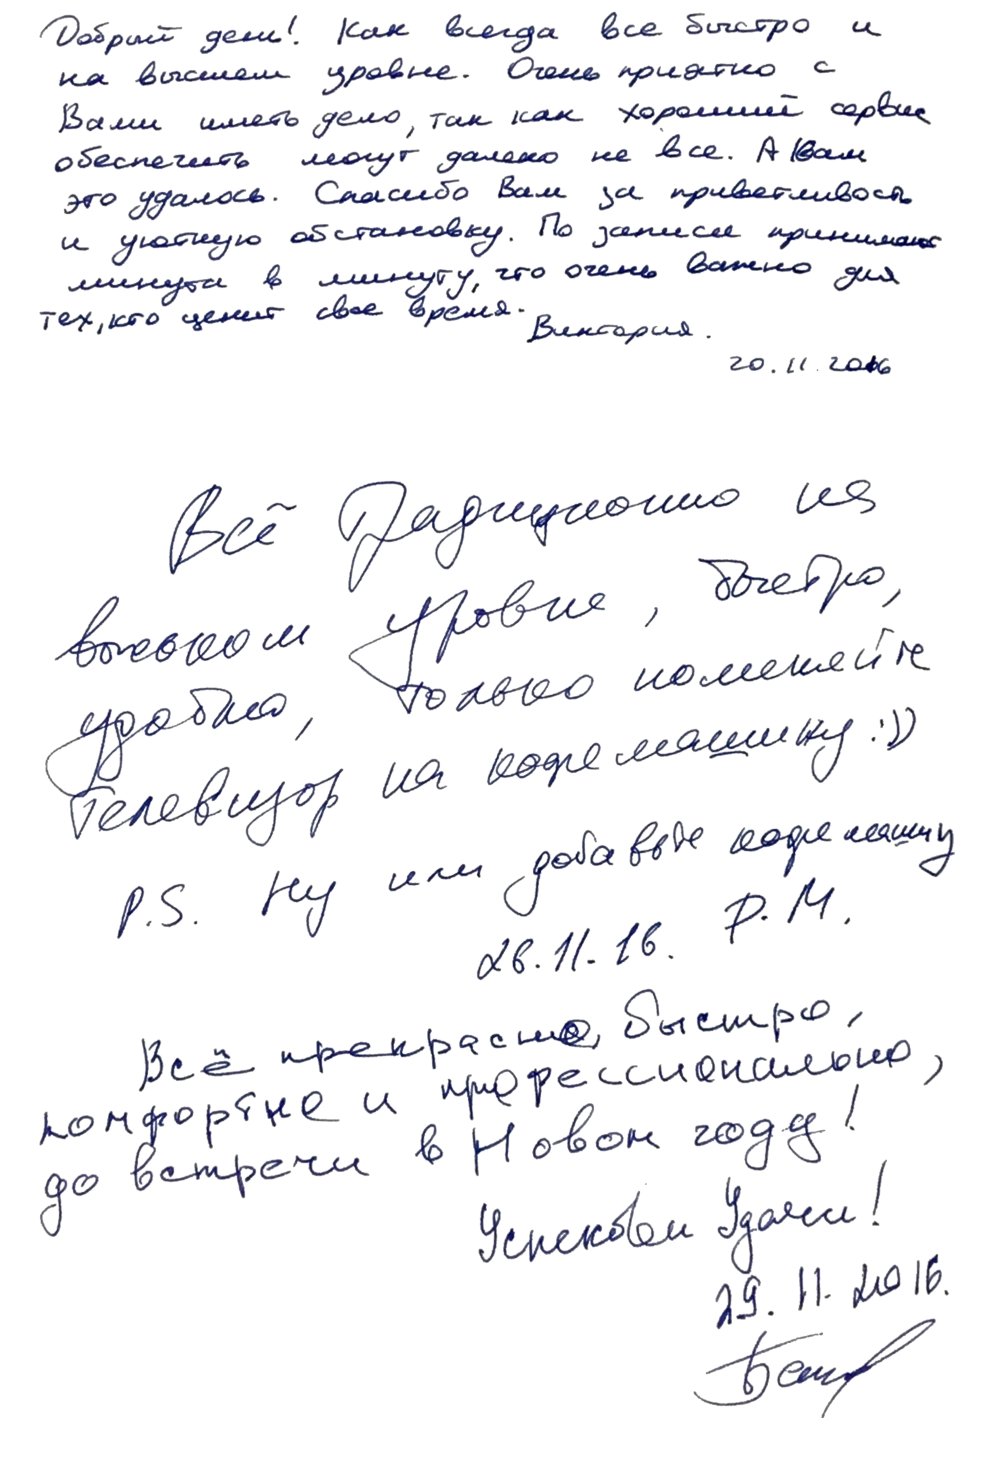 Добрый день! Как всегда все быстро и
на высшем уровне. Очень приятно с
Вами иметь дело, так как хороший сервис
обеспечить могут далеко не все. А Вам
это удалось. Спасибо Вам за приветливость
и уютную обстановку. По записи принимают
минута в минуту, что очень важно для
тех, кто ценит свое время.
Виктория.
20.11.2016
Всё Традиционно на
высоком уровне, быстро,
удобно, только поменяйте
телевизор на кофемашину :))
P.S. Ну или добавьте кофемашину
26.11.16. Р.М.
Всё прекрасно, быстро,
комфортно и профессионально,
до встречи в Новом году!
Успехов и Удачи!
29.11.2016.